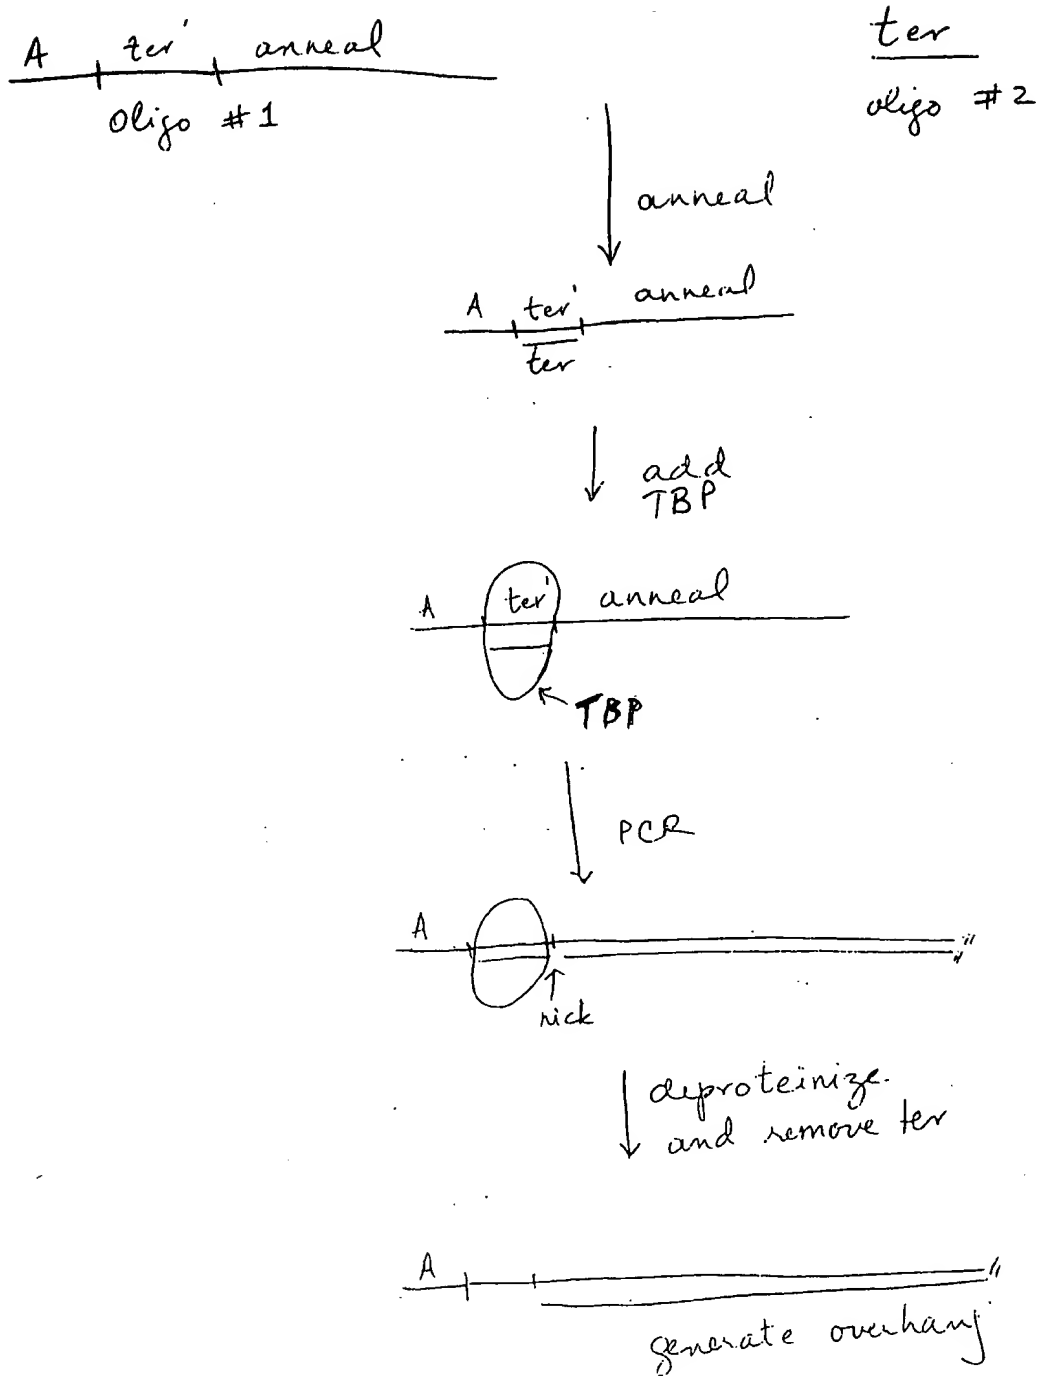 A ter' anneal
oligo #1
ter
oligo #2
anneal
A ter' anneal
ter
add
TBP
A ter' anneal
TBP
PCR
A
nick
deproteinize
and remove ter
A
generate overhang